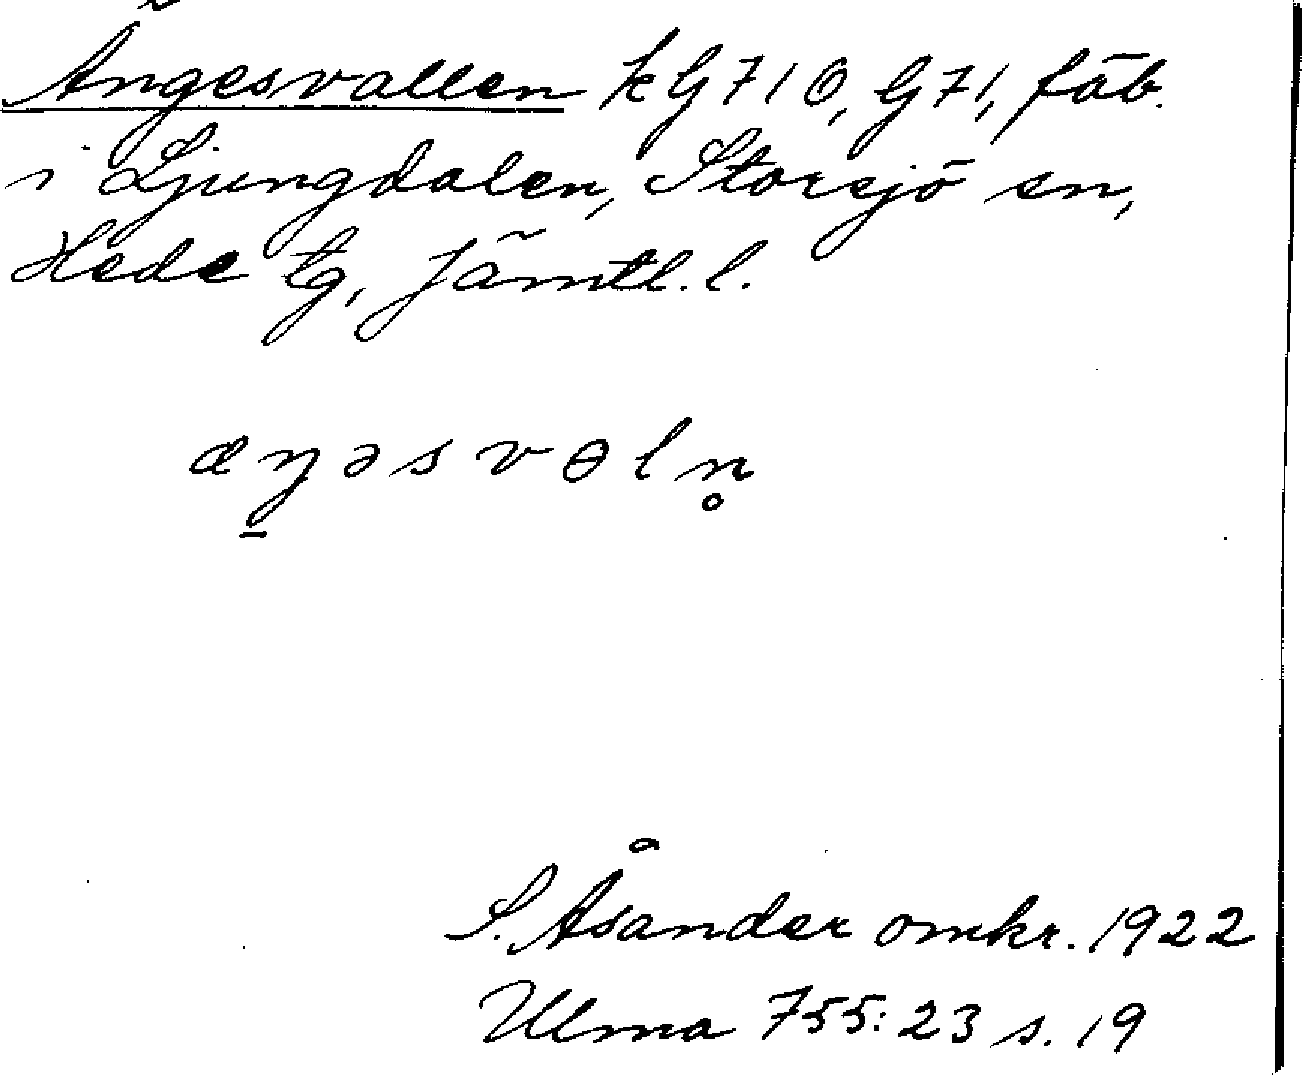 Ängesvallen kG710, G71, fäb.
i Ljungdalen, Storsjö sn,
Hede tg, Jämtl. l.
æŋəsvɵln̥
S. Åsander omkr. 1922
Ulma 755:23 s. 19